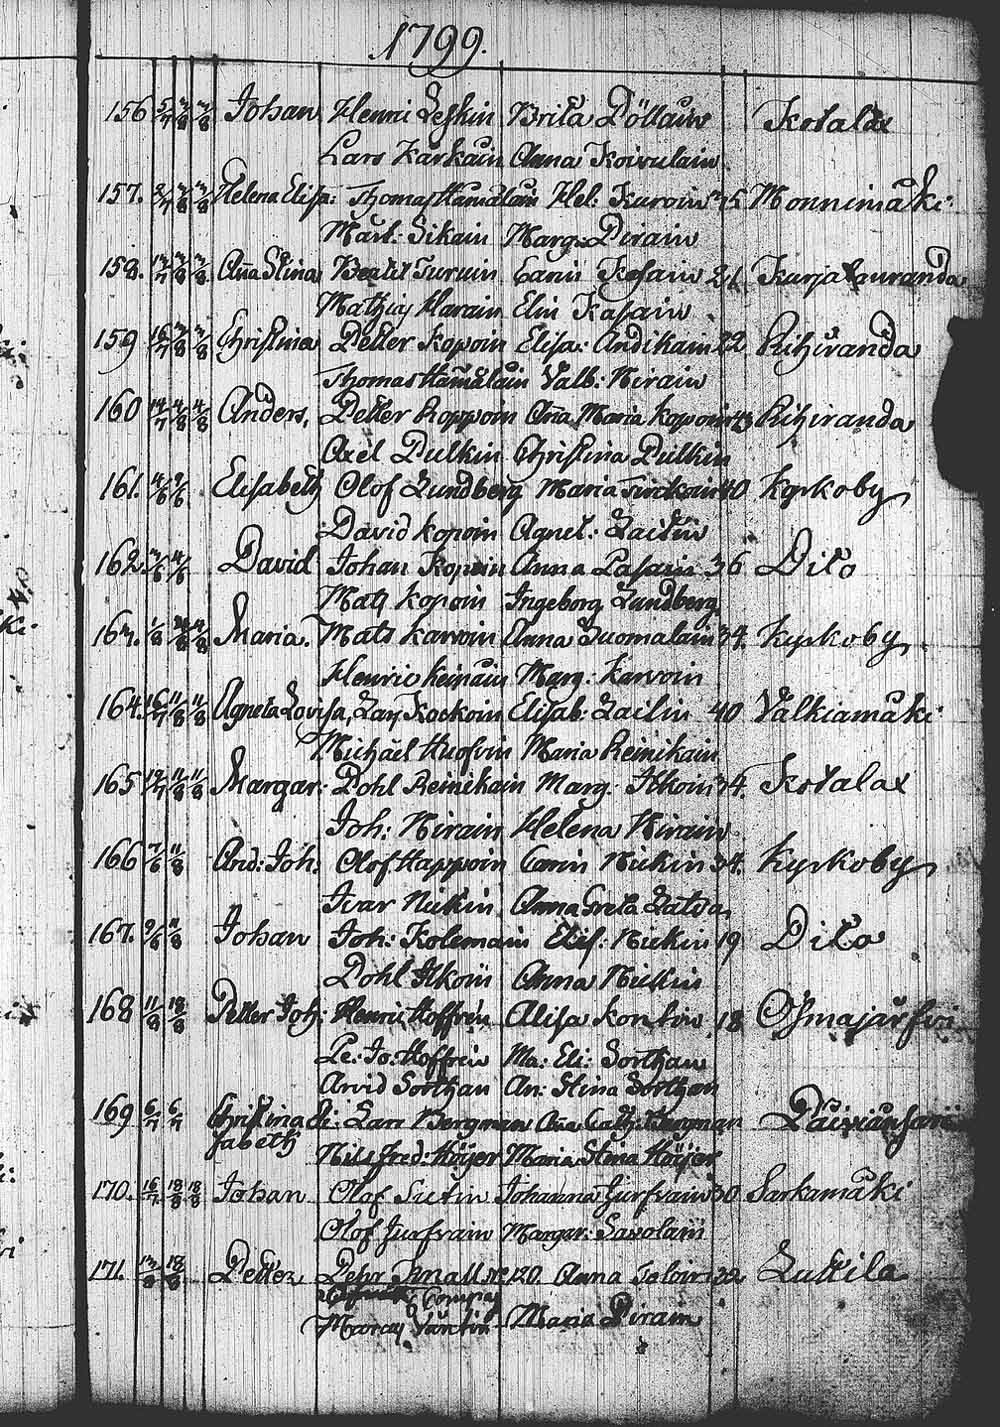 1799.
156 5/7 Johan Henric Leskin Brita Pöllain Kotalax
Lars Karkain Anna Koivulain
157. Helena Elisa: Thomas Hämäläin Hel: Kuroin 35 Monnimäki
Mart: Sikain Marg: Pirain
158. Aña Stina Beatil Turuin Carin Kesain 26 Kurjalauranda
Mathias Harain Elin Kasain
159 16/7 Christina Petter Kopoin Elisa: Andikain 22 Pihiranda
Thomas Hämäläin Valb: Nirain
160 14/7 4/8 4/8 Anders, Petter Roppoin Aña Maria Kopoin 43 Pihiranda
Axel Pulkin Christina Pulkin
161. Elisabeth Olof Lundberg Maria 40 Kyrkoby
David Kopoin Agnet: Laitin
162 David Johan Kopoin Anna Pasain 36 Dito
Mats Kopoin Ingeborg Lundberg
163. 1/8 Maria. Mats Karvoin Anna Suomalain 34. Kyrkoby
Henric Heinäin Marg: Karvoin
164. 16/7 11/8 11/8 Agneta Lovisa, Zaz: Kockoin Elisab: Laitin 40 Valkiamäki
Michäel Huofvin Maria Reinikain
165 19/7 11/8 11/8 Margar: Pohl Reinikain Marg: Itkoin 34. Kotalax
Joh: Nirain Helena Nirain
166 11/8 And: Joh: Olof Happoin Carin Nickin 34. Kyrkoby
Ivar Nickin Anna Greta Latva
167. 9/8 11/8 Johan Joh: Kolemain Elis: Nickin 19 Dito
Pohl Itkoin Anna Nickin
168 11/8 18/8 Petter Joh: Henric Hoffrén Alisa Kontin 18 Osmajärfvi
Pe: Jo: Hoffrén Ma: Eli: Sorthan
Arvid Sorthan An: Stina Sorthan
169 6/7 6/7 Christina Eli- Lars Bergman Aña Cath: Bergman
sabeth
Nils Fred: Höijer Maria Stina Höijer
170. 16/7 18/8 18/8 Johan Olof Sutin Johanna Jurfvain 30 Sarkamäki
Olof Jurfvain Margar: Savolain
171. 18/8 Petter Pehr Snäll No 120. Anna Toloin 32 Luttila
Compa:
Marcus Väntin Maria Pirain